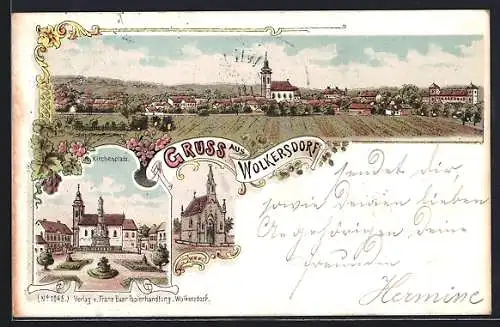 GRUSS AUS
WOLKERSDORF
Kirchenplatz.
sendet dir,
sowie deinen lieben
Angehörigen, deine
Freundin
Hermine
(No 1045.) Verlag v. Franz Exner Papierhandlung, Wolkersdorf.